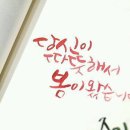 당신이
따뜻해서
봄이 왔습니다